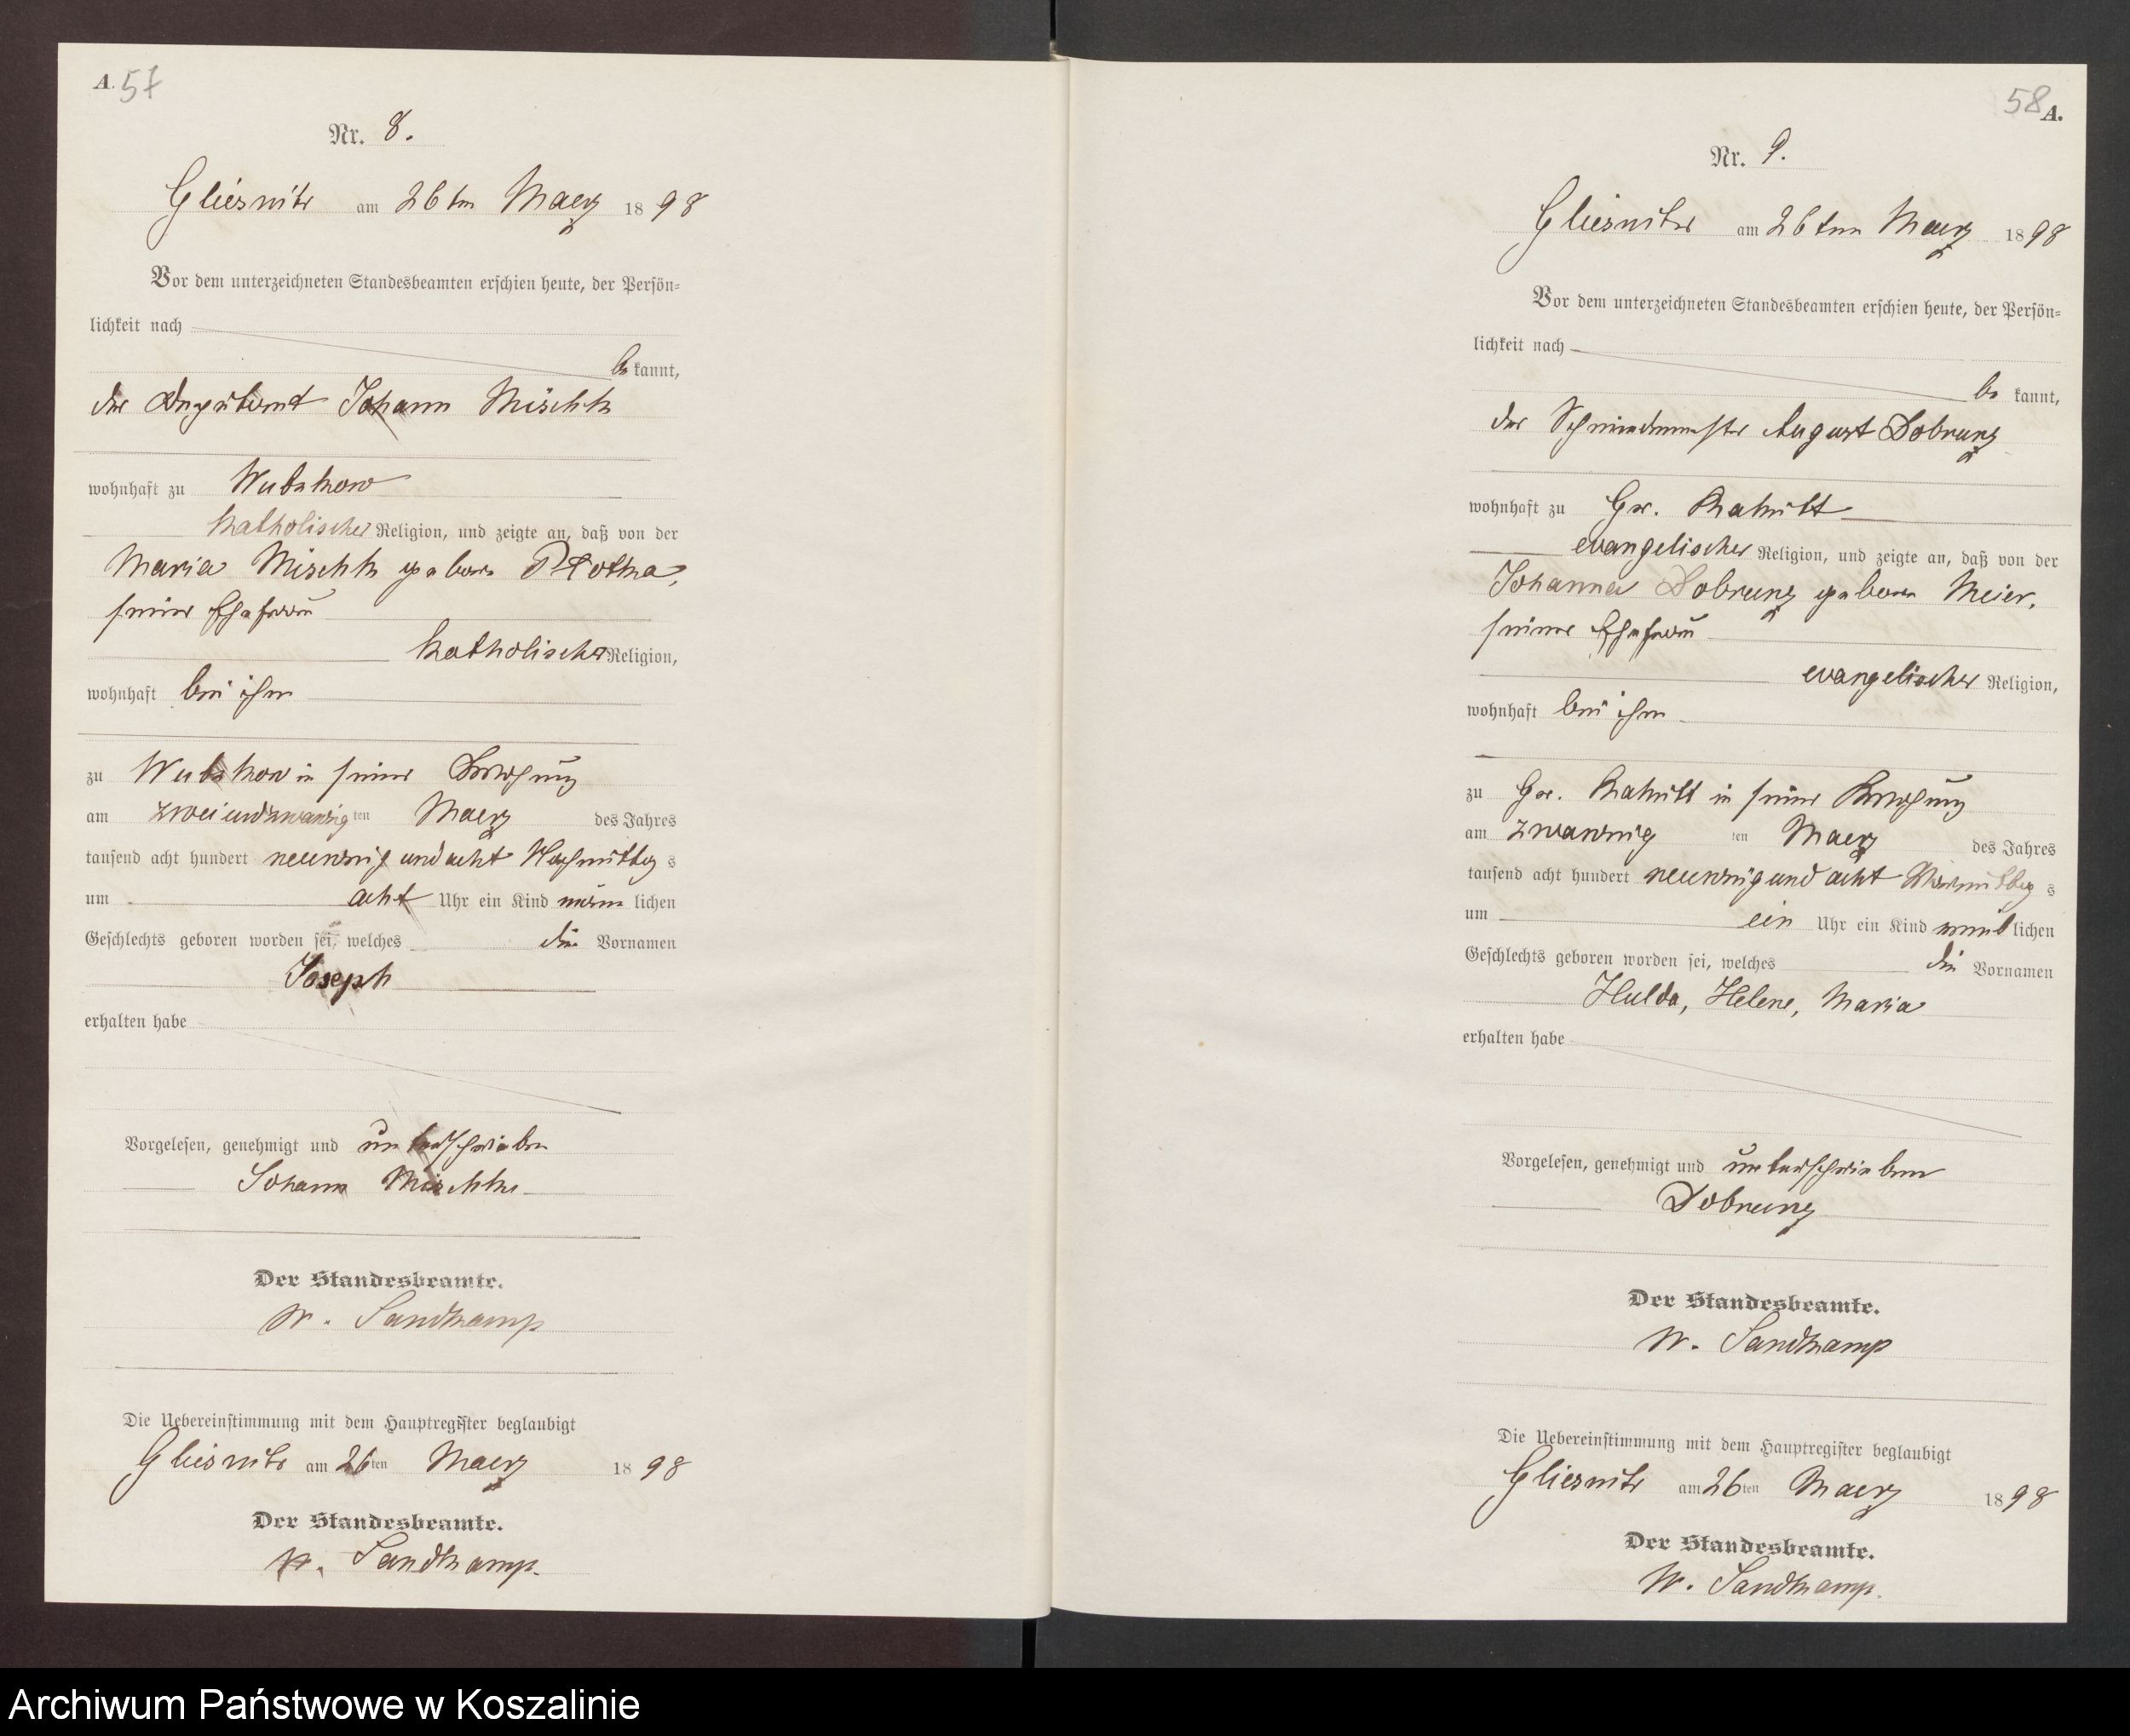 A. 57
Nr. 8.
Gliesnitz am 26ten Maerz 1898
Vor dem unterzeichneten Standesbeamten erschien heute, der Persön-
lichkeit nach
be kannt,
der Johann Mischk
wohnhaft zu Wutzkow
katholischer Religion, und zeigte an, daß von der
Maria Mischk geborne Plotka,
seiner Ehefrau
katholischer Religion,
wohnhaft bei ihm
zu Wutzkow in seiner Wohnung
am zweiundzwanzig ten Maerz des Jahres
tausend acht hundert neunzig und acht Nachmittag s
um acht Uhr ein Kind männ lichen
Geschlechts geboren worden sei, welches die Vornamen
Joseph
erhalten habe
Vorgelesen, genehmigt und unterschrieben
Johann Mischke
Der Standesbeamte.
W. Sandkamp
Die Uebereinstimmung mit dem Hauptregister beglaubigt
Gliesnitz am 26ten Maerz 1898
Der Standesbeamte.
W. Sandkamp.
58 A.
Nr. 9.
Gliesnitz am 26ten Maerz 1898
Vor dem unterzeichneten Standesbeamten erschien heute, der Persön-
lichkeit nach
be kannt,
der Schmiedemeister August Dobrunz
wohnhaft zu Gr. Rakitt
evangelischer Religion, und zeigte an, daß von der
Johanna Dobrunz geborne Meier,
seiner Ehefrau
evangelischer Religion,
wohnhaft bei ihm
zu Gr. Rakitt in seiner Wohnung
am zwanzig ten Maerz des Jahres
tausend acht hundert neunzig und acht s
um ein Uhr ein Kind weib lichen
Geschlechts geboren worden sei, welches die Vornamen
Hulda, Helene, Maria
erhalten habe
Vorgelesen, genehmigt und unterschrieben
Dobrunz
Der Standesbeamte.
W. Sandkamp
Die Uebereinstimmung mit dem Hauptregister beglaubigt
Gliesnitz am 26ten Maerz 1898
Der Standesbeamte.
W. Sandkamp.
Archiwum Państwowe w Koszalinie